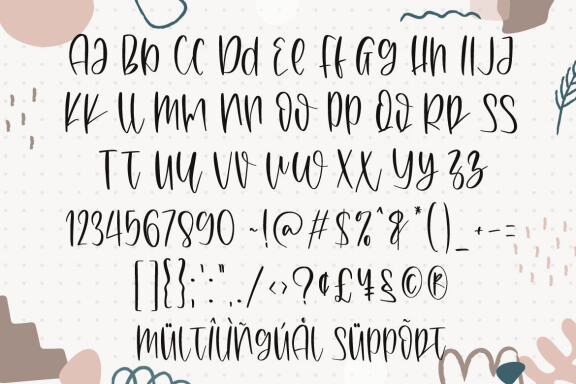 Aa Bb Cc Dd Ee Ff Gg Hh Ii Jj
Kk Ll Mm Nn Oo Pp Qq Rr Ss
Tt Uu Vv Ww Xx Yy Zz
1234567890 ~!@#$%^&*()_+-=
[]{};':",./<>?¢£¥§©®
mültîlìñgúÅl süppÕrt